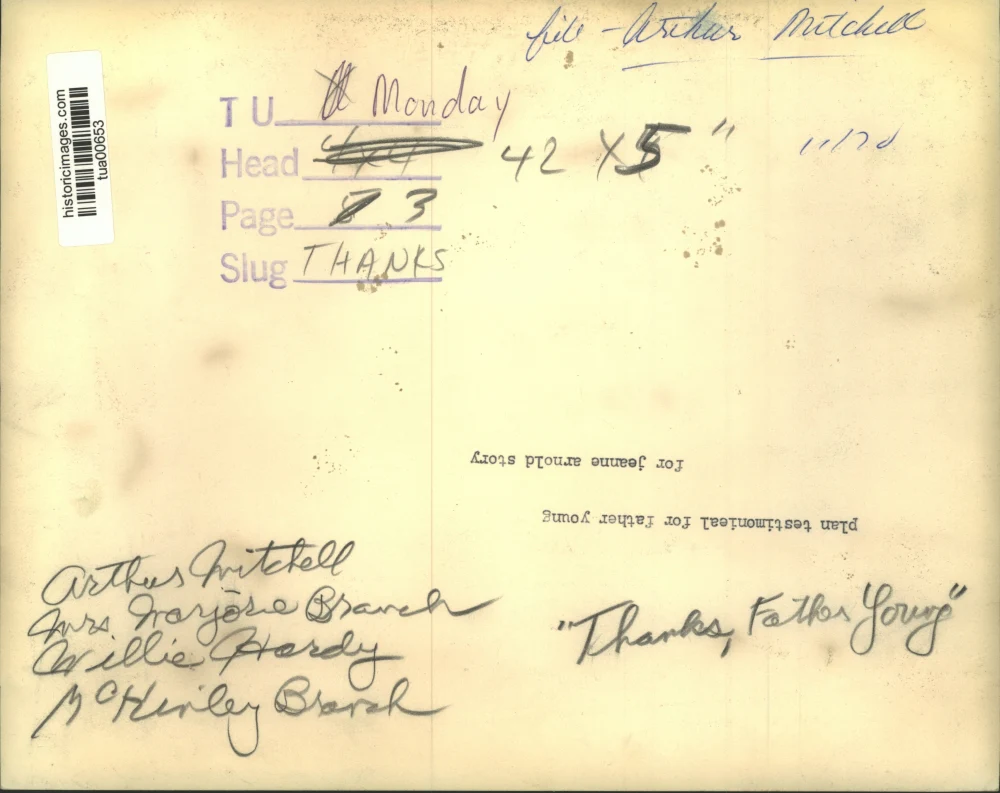 file - Arthur Mitchell
historicimages.com
tua00653
T U Monday
Head 42 X 5"
11/70
Page 3
Slug THANKS
for jeanne arnold story
plan testimonieal for father young
Arthur Mitchell
Mrs. Marjorie Branch
Willie Hardy
McKinley Branch
"Thanks, Father Young"